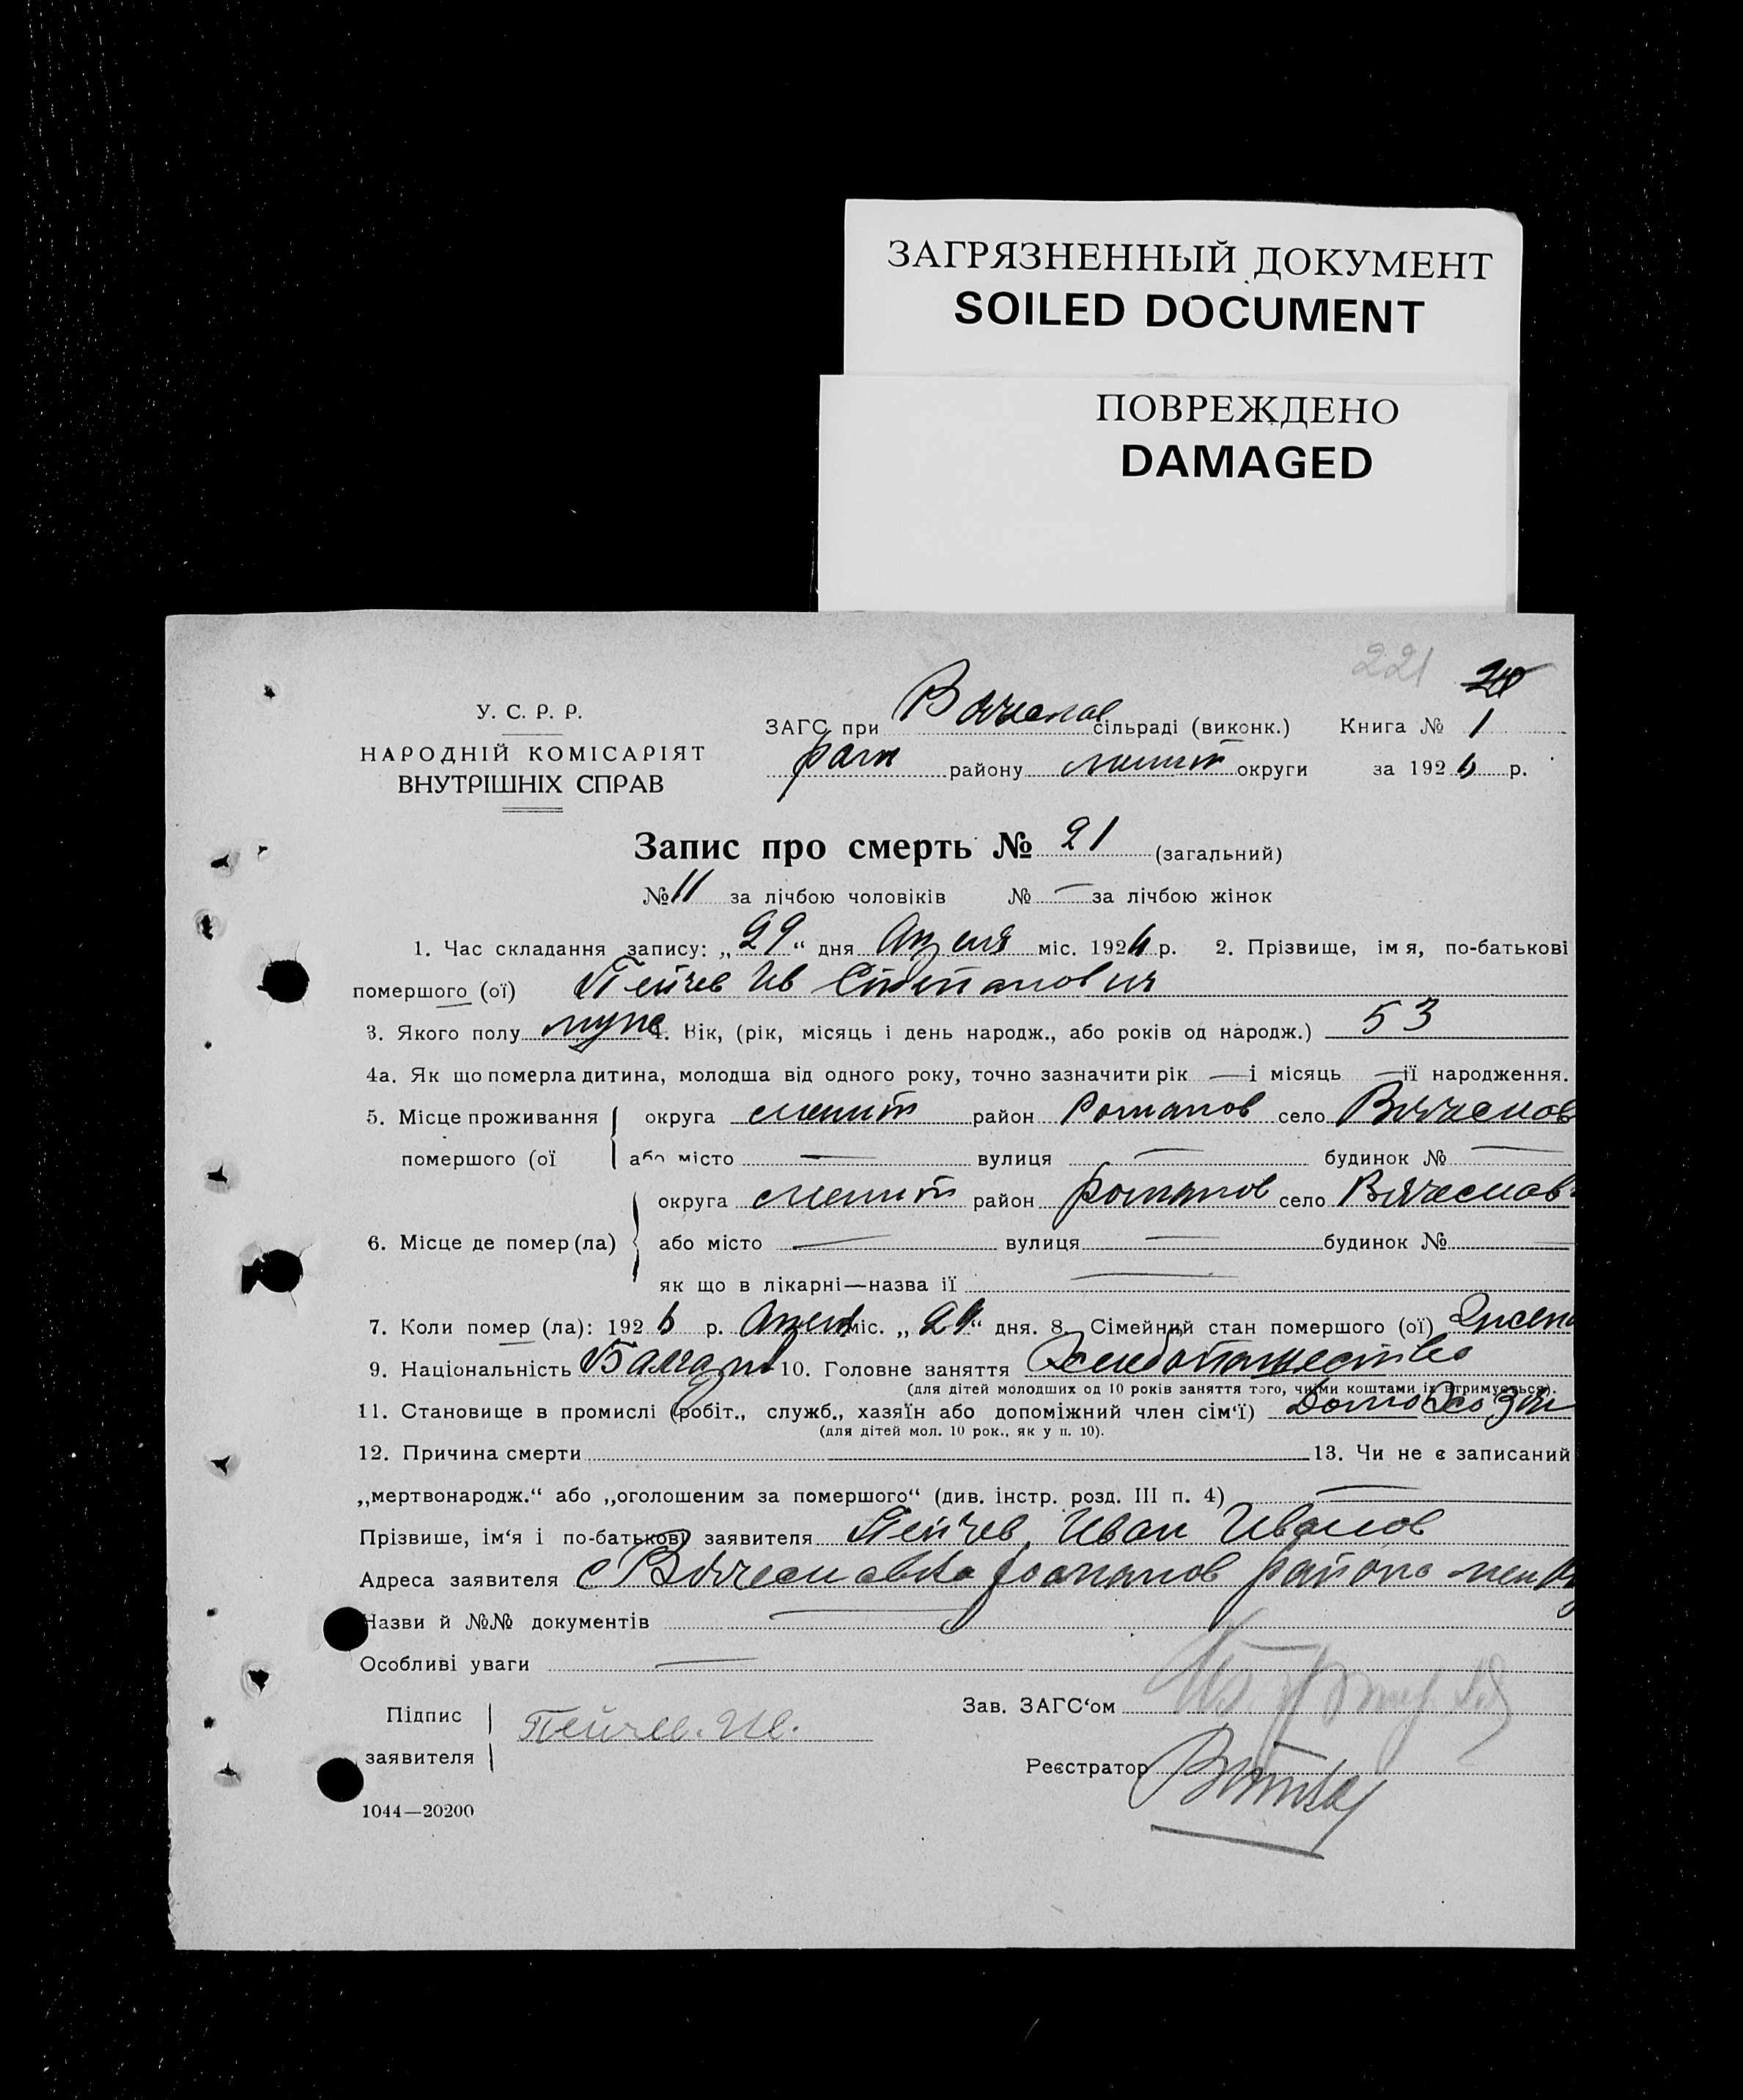 ЗАГРЯЗНЕННЫЙ ДОКУМЕНТ
SOILED DOCUMENT
ПОВРЕЖДЕНО
DAMAGED
221
У. С. Р. Р.
НАРОДНІЙ КОМІСАРІЯТ
ВНУТРІШНІХ СПРАВ
ЗАГС при сільраді (виконк.) Книга № 1
району округи за 1926 р.
Запис про смерть № 21 (загальний)
№ 11 за лічбою чоловіків № — за лічбою жінок
1. Час складання запису: „29“ дня Апреля міс. 1926 р. 2. Прізвище, імя, по-батькові
помершого (ої) Пейчев Ив Степанович
3. Якого полу муже 4. Вік, (рік, місяць і день народж., або років од народж.) 53
4а. Як що померла дитина, молодша від одного року, точно зазначити рік — і місяць — її народження.
5. Місце проживання округа мелит район Романов село Вячеслов
помершого (ої або місто — вулиця — будинок № —
округа мелит район Романов село Вячеслав
6. Місце де помер (ла) або місто — вулиця — будинок № —
як що в лікарні—назва її —
7. Коли помер (ла): 1926 р. міс. „29“ дня. 8. Сімейний стан помершого (ої)
9. Національність Балгари 10. Головне заняття
(для дітей молодших од 10 років заняття того, чиїми коштами їх втримується).
11. Становище в промислі (робіт., служб., хазяїн або допоміжний член сім‘ї) Домохозяи
(для дітей мол. 10 рок., як у п. 10).
12. Причина смерти 13. Чи не є записаний
„мертвонародж.“ або „оголошеним за помершого“ (див. інстр. розд. III п. 4) —
Прізвише, ім‘я і по-батькові заявителя Пейчев Иван Иванов
Адреса заявителя с Вячеславка романов района
Назви й №№ документів —
Особливі уваги —
Підпис Пейчев. Ив. Зав. ЗАГС‘ом
заявителя Реєстратор
1044—20200